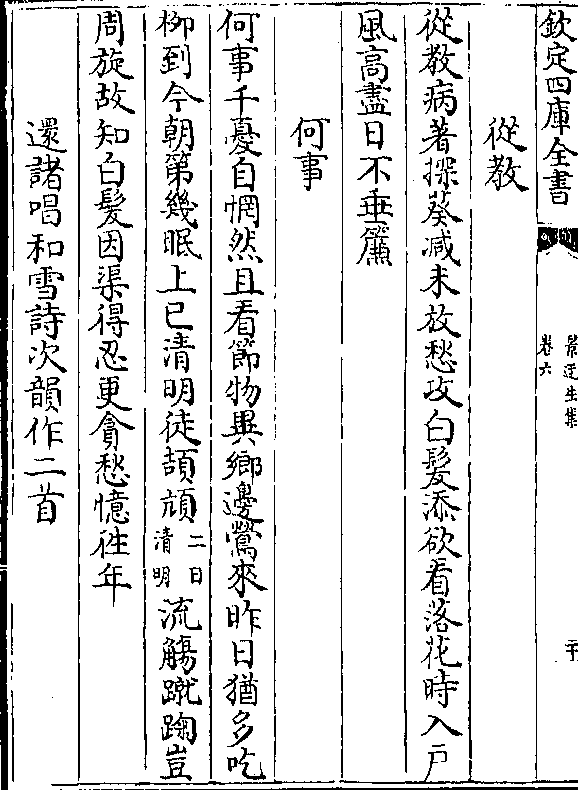 欽定四庫全書
景迂生集
卷六
從教
從教病著探葵減未放愁攻白髮添欲看落花時入戶
風高盡日不垂簾
何事
何事千憂自惘然且看節物異鄉邊鶯來昨日猶多吃
柳到今朝第幾眠上巳清明徒頡頏二日清明流觴蹴踘豈
周旋故知白髮因渠得忍更貪愁憶徃年
還諸唱和雪詩次韻作二首